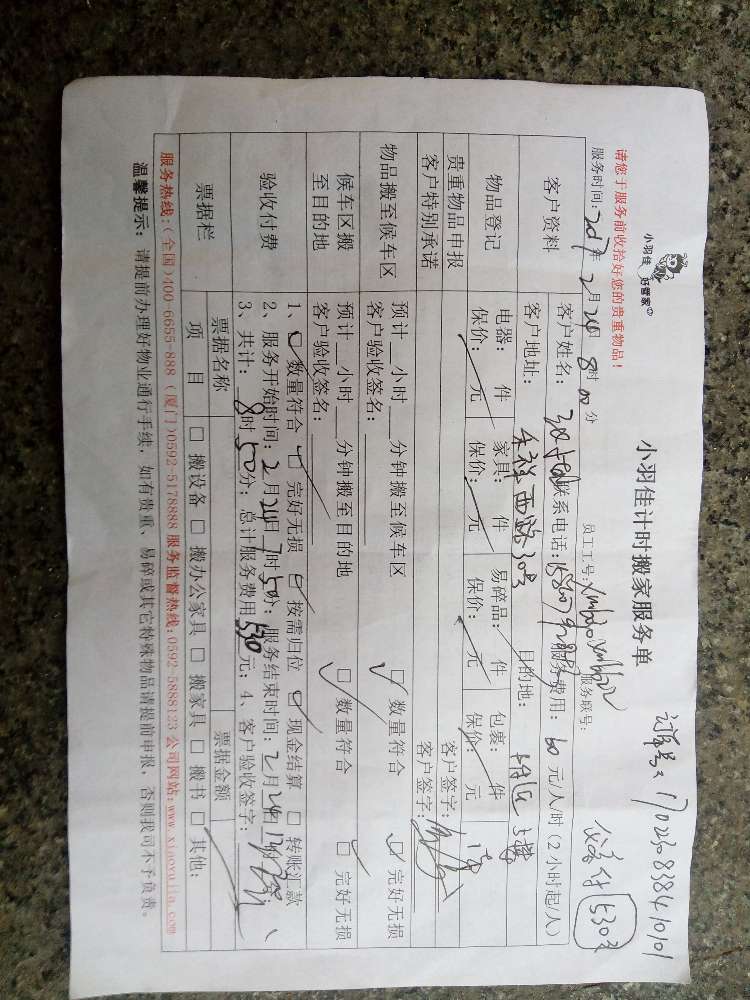 订单号：17022383841010
小羽佳 好管家
小羽佳计时搬家服务单
请您于服务前收拾好您的贵重物品！
服务时间：2017年2月24日8时00分 员工工号： 服务联号：
客户资料 客户姓名： 联系电话： 服务费用：60元/人/时（2小时起/人）
客户地址： 西路30号 目的地：
物品登记 电器： 件 家具： 件 易碎品： 件 包裹： 件
保价： 元 保价： 元 保价： 元 保价： 元
贵重物品申报 客户签字：
客户特别承诺 客户签字：
物品搬至候车区 预计 小时 分钟搬至候车区 □ 数量符合 □ 完好无损
客户验收签名：
候车区搬至目的地 预计 小时 分钟搬至目的地 □ 数量符合 □ 完好无损
客户验收签名：
验收付费 1、□ 数量符合 □ 完好无损 □ 按需归位 □ 现金结算 □ 转账汇款
2、服务开始时间：2月24日7时50分；服务结束时间：2月24日
3、共计：8时50分；总计服务费用530元；4、客户验收签字：
票据栏 票据名称 票据金额
项 目 □ 搬设备 □ 搬办公家具 □ 搬家具 □ 搬书 □ 其他：
服务热线：(全国)400-6655-888 (厦门)0592-5178888 服务监督热线：0592-5888123 公司网站：www.xiaoyujia.com
温馨提示： 请提前办理好物业通行手续，如有贵重、易碎或其它特殊物品请提前申报，否则我司不予负责。